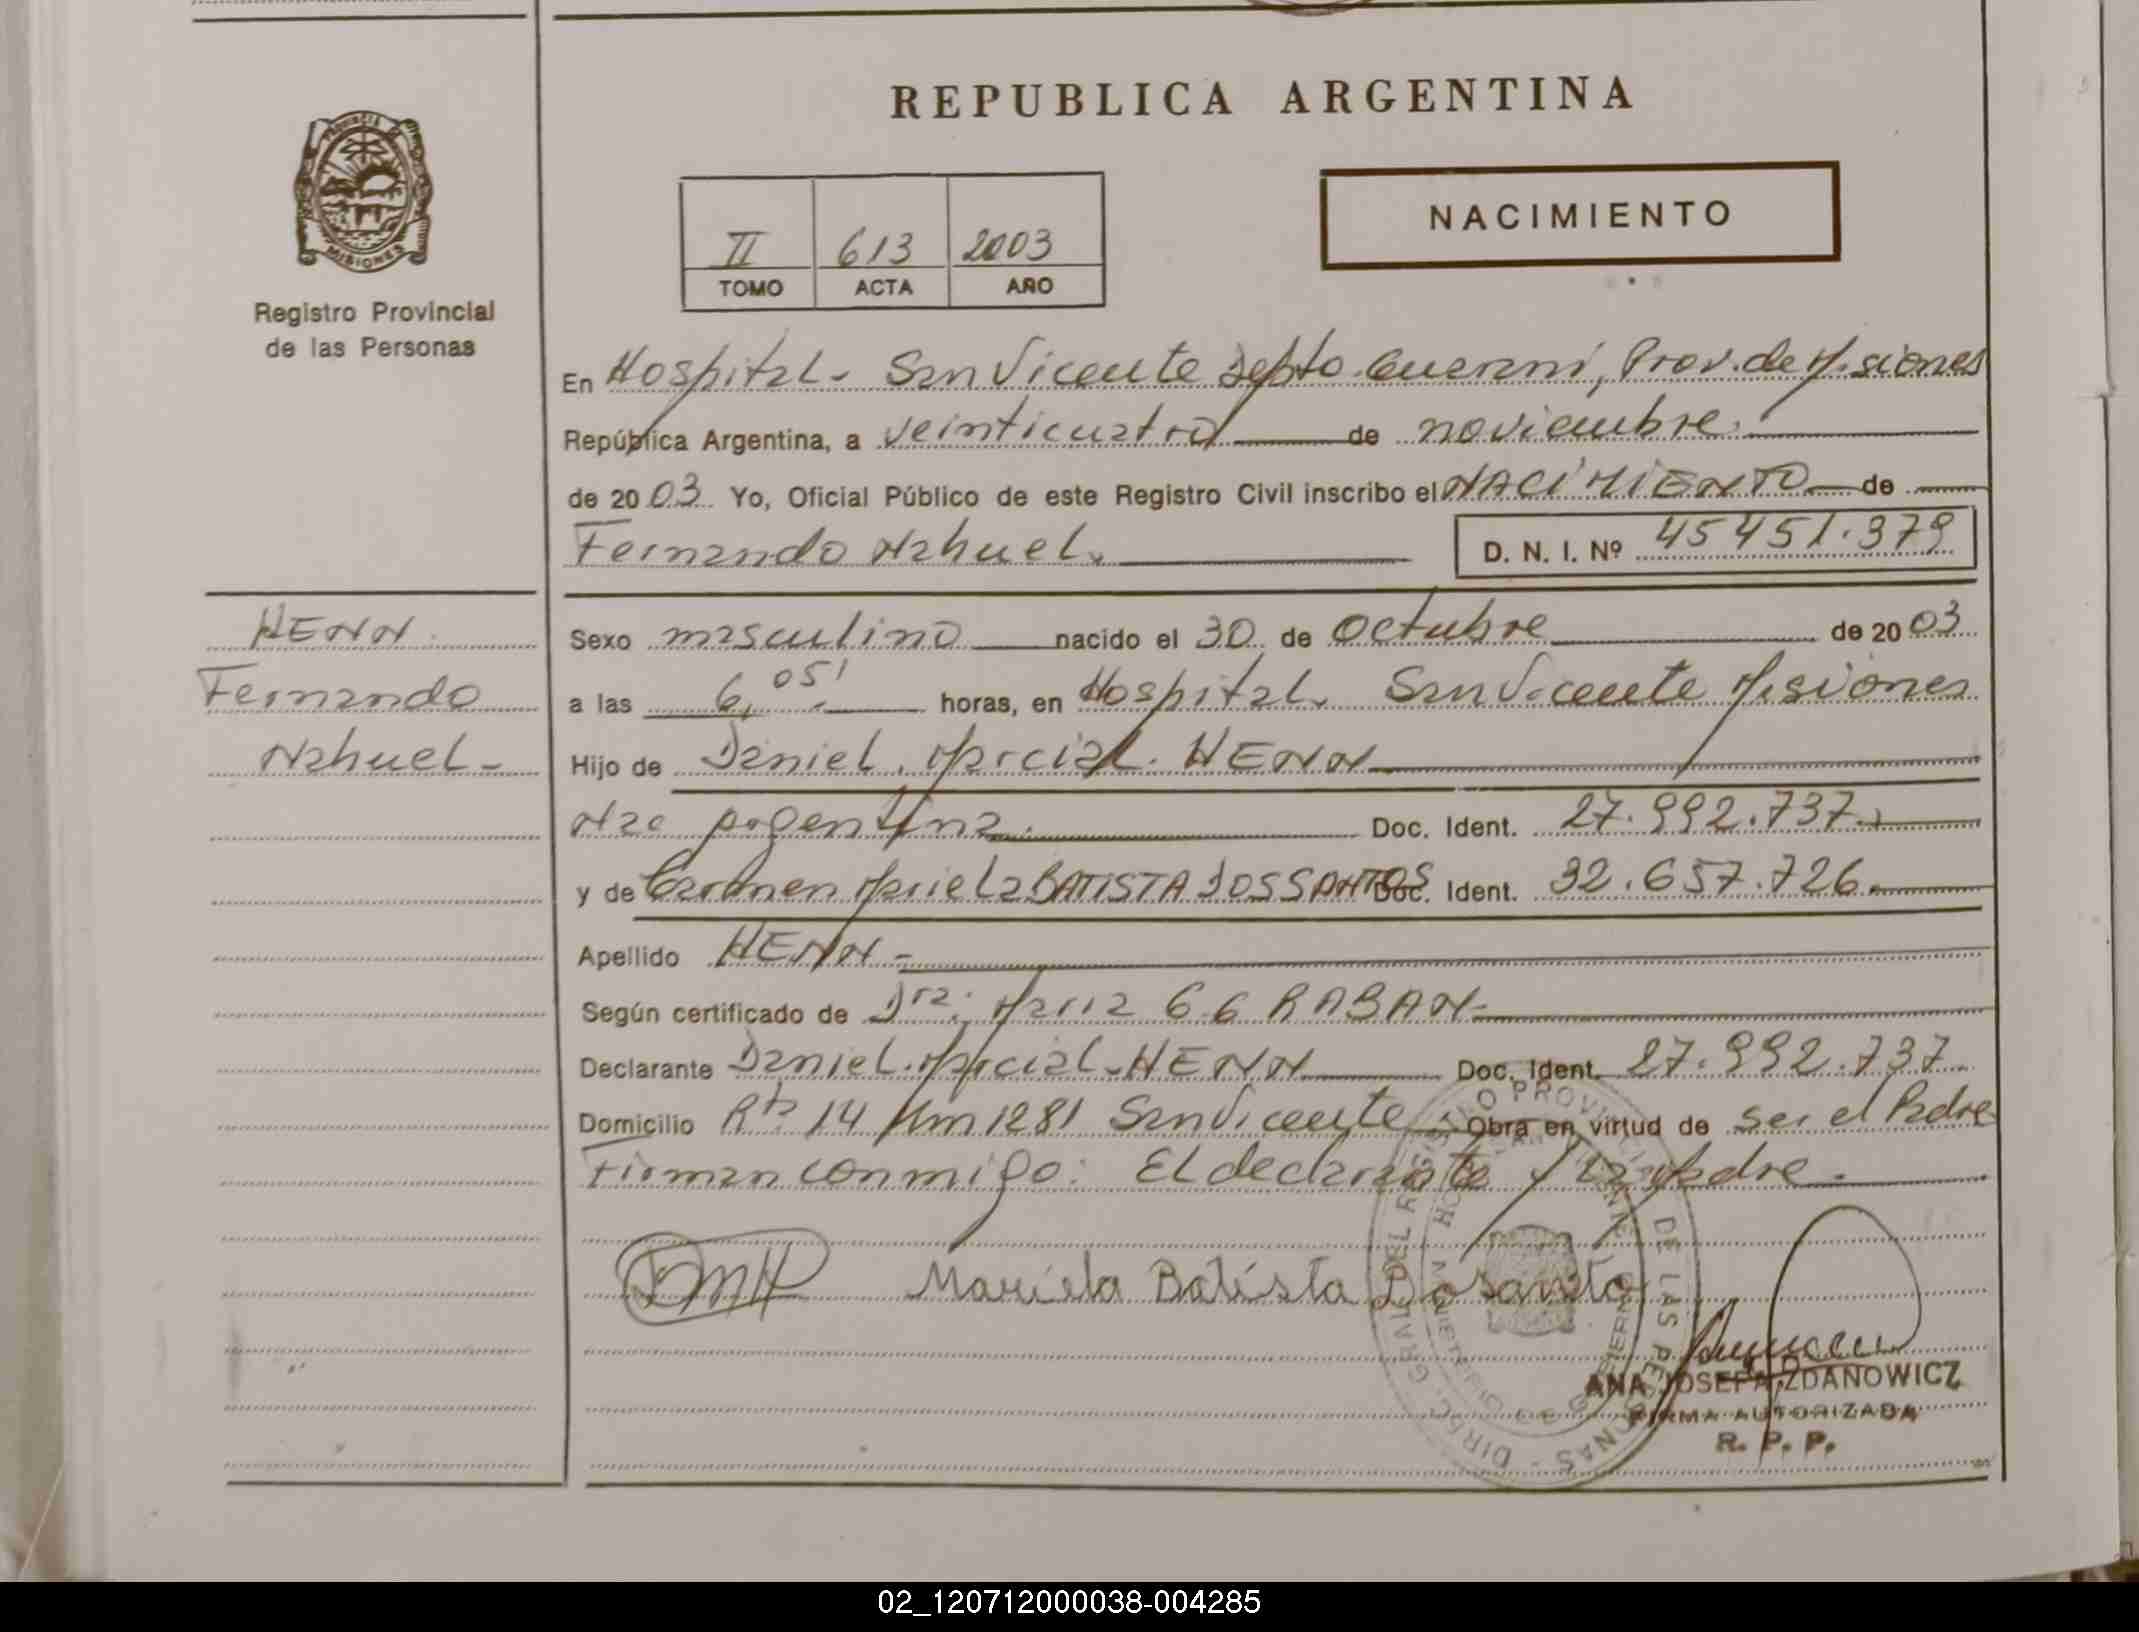 REPUBLICA ARGENTINA
PROVINCIA DE
MISIONES
Registro Provincial
de las Personas
II 613 2003
TOMO ACTA AÑO
NACIMIENTO
En Hospital - San Vicente Depto. Guaraní, Prov. de Misiones
República Argentina, a veinticuatro de noviembre
de 2003 Yo, Oficial Público de este Registro Civil inscribo el NACIMIENTO de
Fernando Nahuel D. N. I. Nº 45451.379
HENN
Fernando
Nahuel -
Sexo masculino nacido el 30 de Octubre de 2003
a las 6,05' horas, en Hospital. San Vicente Misiones
Hijo de Daniel Marcial HENN
Nac Argentina Doc. Ident. 27.992.737.
y de Carmen Mariela BATISTA DOSSANTOS Doc. Ident. 32.657.726.
Apellido HENN -
Según certificado de Dra. Maria RABAN
Declarante Daniel Marcial HENN Doc. Ident. 27.992.737
Domicilio Rta 14 Km 1281 San Vicente Obra en virtud de ser el Padre
Firman conmigo: El declarante y la Madre.
Mariela Batista Dosanto
ANA JOSEFA ZDANOWICZ
FIRMA AUTORIZADA
R. P. P.
02_120712000038-004285